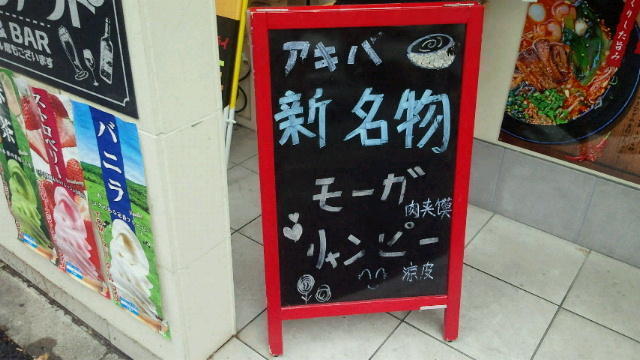 & BAR
アキバ
新名物
モーガ
肉夹馍
リャンピー
凉皮
バニラ
ストロベリー